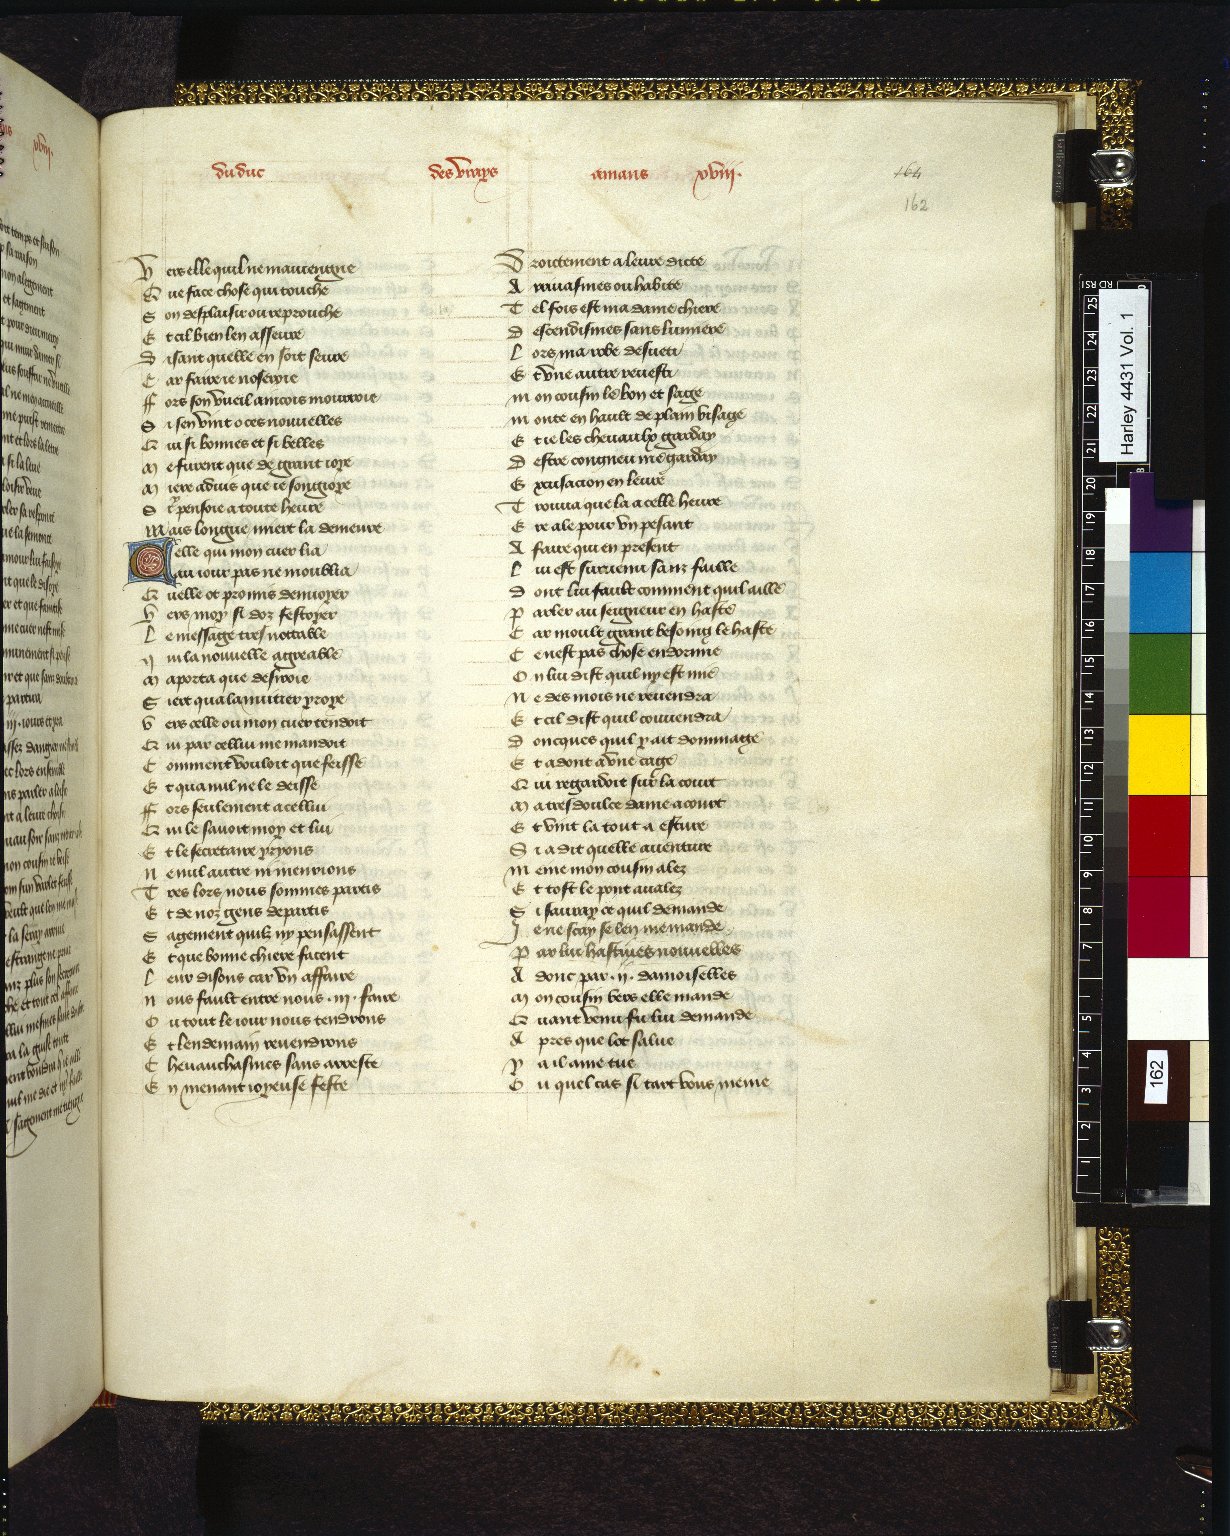 du duc des vrays amans xviii.
164
162
Vers elle quil ne mautengne
Que face chose qui touche
Son desplaisir ou reprouche
Et cil bien len asseure
Disant quelle en soit seure
Car faire ie noseroie
Fors son vueil aincois mourroie
Si sen vint o ces nouvelles
Qui si bonnes et si belles
Me furent que de grant ioye
Miere aduis que ie songioye
Si y pensoie a toute heure
Mais longue niert la demeure
Celle qui mon cuer lia
Cau iour pas ne moublia
Quelle ot promis denuoyer
Vers moy si doz festoyer
Le message tres nottable
Qui la nouvelle agreable
Maporta que desiroie
Siert qua lanuitier yroye
Vers celle ou mon cuer tendoit
Qui par cellui me mandoit
Comment vouloit que feisse
Et qua nul ne le deisse
Fors seulement a cellui
Qui le sauoit moy et lui
Et le secretaire yryons
Ne nul autre ni menrions
Tres lors nous sommes partis
Et de noz gens departis
Sagement quilz ny pensassent
Et que bonne chiere facent
Leur disons car vn affaire
Nous fault entre nous .iii. faire
Ou tout le iour nous tendrons
Et lendemain reuendrons
Cheuauchasmes sans arreste
En menant ioyeuse feste
Droictement a leure dicte
Arriuasmes ou habite
Tel fois est ma dame chiere
Descendismes sans lumiere
Lors ma robe desuesti
Et vne autre reuesti
Mon cousin le bon et sage
Monte en hault de plain visage
Et ie les cheuaulx garday
Destre congneu me garday
Excusacion en leure
Trouua que la a celle heure
Ere ale pour vn pesant
Afaire qui en present
Lui est suruenu sanz faille
Dont lui fault comment quil aille
Parler au seigneur en haste
Car moult grant besoing le haste
Ce nest pas chose endormie
On lui dist quil ny est mie
Ne des mois ne reuendra
Et cil dist quil couuendra
Doncques quil y ait dommage
Et adont a vne cage
Qui regardoit sur la court
Ma tres doulce dame acourt
Et vint la tout a esture
Si a dit quelle auenture
Meme mon cousin alez
Et tost le pont aualez
Si sauray ce quil demande
Je ne scay se len me mande
Par lui hastiues nouuelles
Adonc par .ii. damoiselles
Mon cousin vers elle mande
Quant venu fu lui demande
Apres que lot salue
Y a il ame tue
Ou quel cas si tart vous meine
Harley 4431 Vol. 1
162